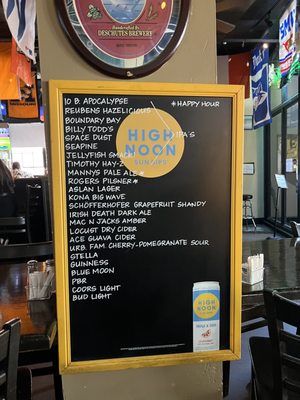 Handcrafted in Bend, Oregon
DESCHUTES BREWERY
10 B. APOCALYPSE
*HAPPY HOUR
REUBENS HAZELICIOUS
BOUNDARY BAY
BILLY TODD'S
SPACE DUST
IPA'S
SEAPINE
JELLYFISH SMACK
TIMOTHY HAY-Z
MANNYS PALE ALE*
ROGERS PILSNER*
ASLAN LAGER
KONA BIG WAVE
SCHÖFFERHOFER GRAPEFRUIT SHANDY
IRISH DEATH DARK ALE
MAC N JACKS AMBER
LOCUST DRY CIDER
ACE GUAVA CIDER
URB. FAM. CHERRY-POMEGRANATE SOUR
STELLA
GUINNESS
BLUE MOON
PBR
COORS LIGHT
BUD LIGHT
HIGH
NOON
SUN SIPS!
HIGH
NOON